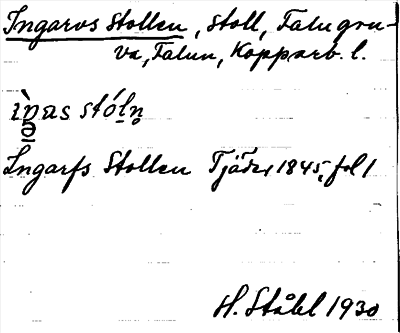 Ingarvs Stollen, stoll, Falu gru-
va, Falun, Kopparb. l.
Ingarfs Stollen Tjäder 1845, fol 1
H. Ståhl 1930